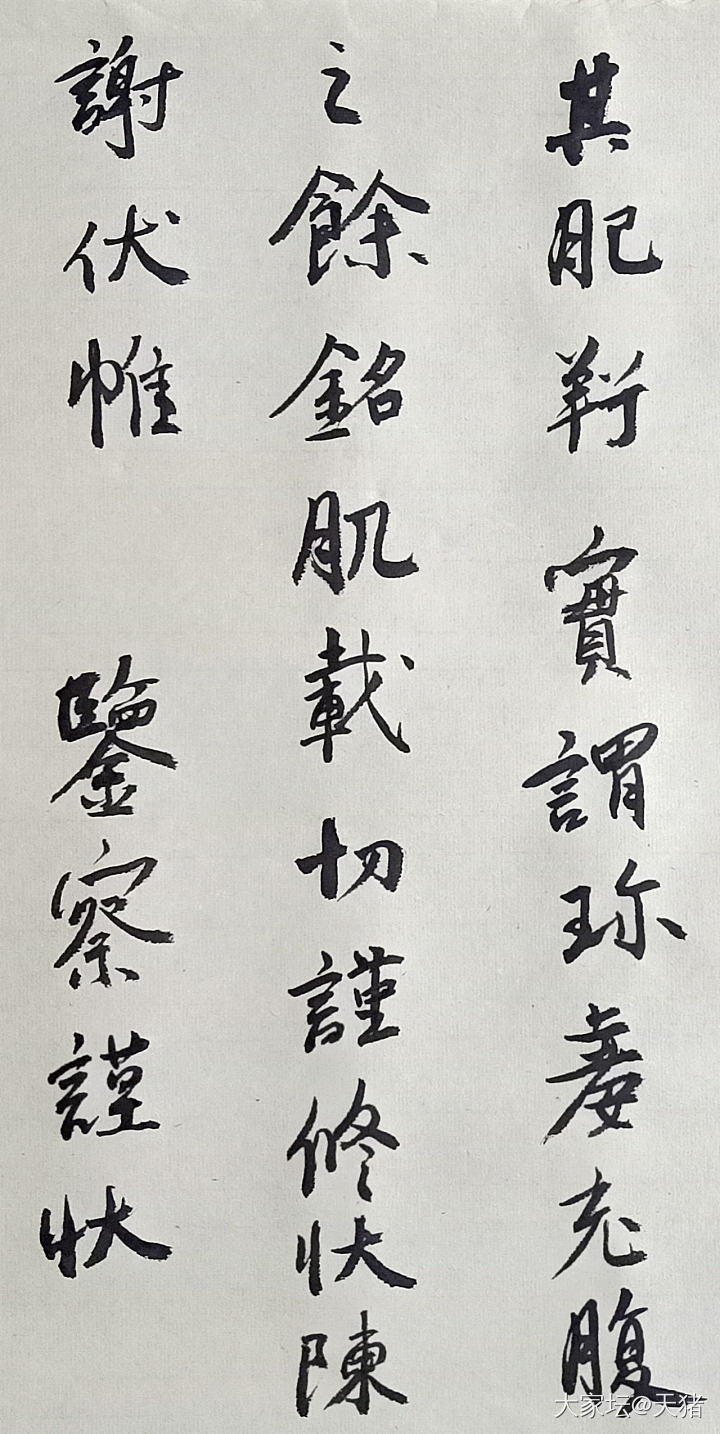 其肥羜實謂珎羞充腹
之餘銘肌載切謹修状陳
謝伏惟 鑒察謹状
大家坛@天猪